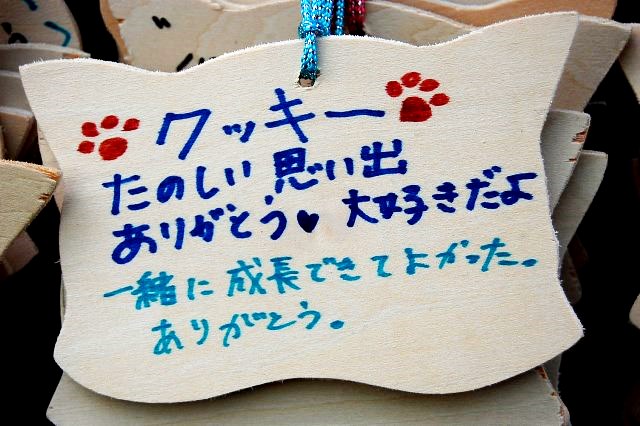 クッキー
たのしい思い出
ありがとう♥ 大好きだよ
一緒に成長できてよかった。
ありがとう。